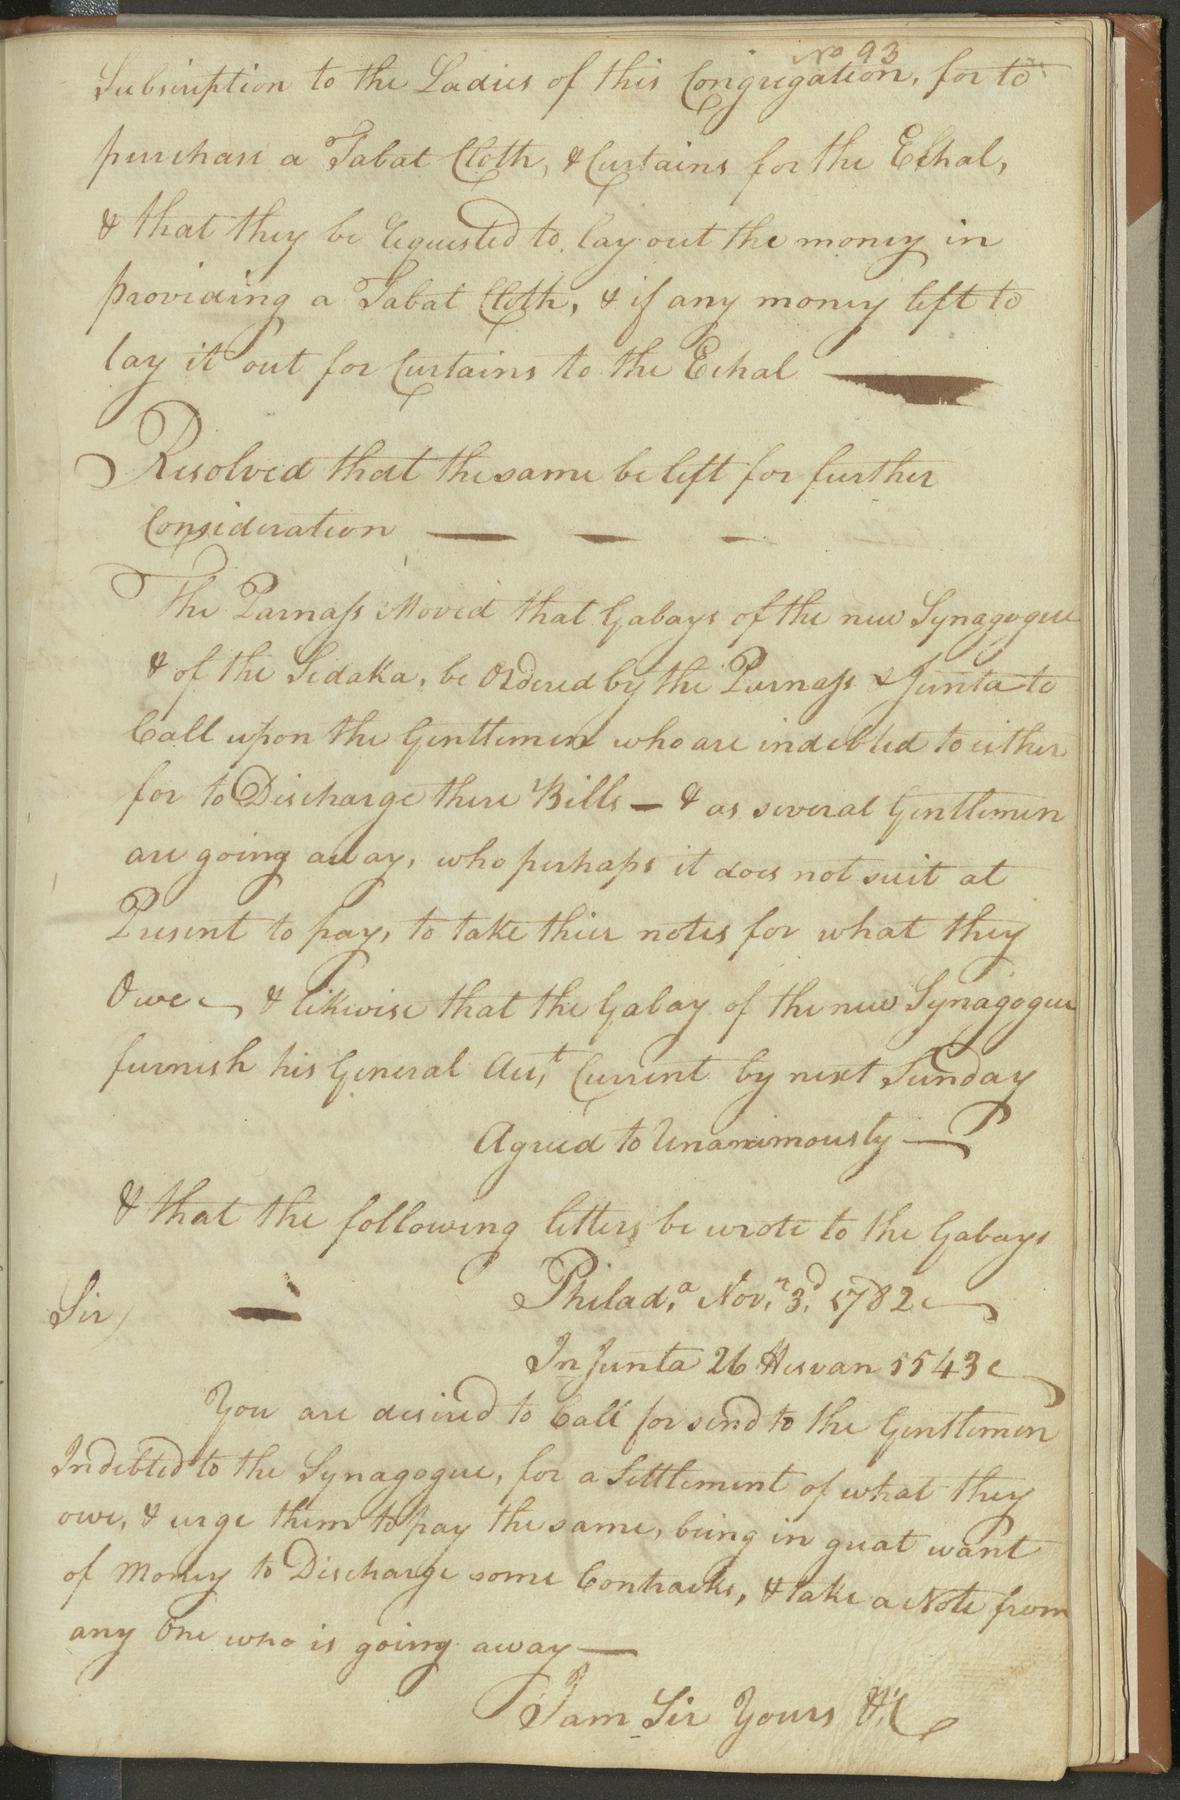 No 93
Subscription to the Ladies of this Congregation, for to
purchase a Tabat Cloth, & Curtains for the Echal,
& that they be requested to lay out the money in
providing a Tabat Cloth, & if any money left to
lay it out for Curtains to the Echal
Resolved that the same be left for further
Consideration
The Parnass Moved that Gabays of the new Synagogue
& of the Sedaka, be Ordered by the Parnass & Junta to
Call upon the Genttemen who are indebted to either
for to Discharge there Bills — & as several Gentlemen
are going away, who perhaps it does not suit at
Present to pay, to take thier notes for what they
Owe & likwise that the Gabay of the new Synagogue
furnish his General Acct, Current by next Sunday
Agreed to Unanimously
& that the following letters be wrote to the Gabays
Philad.a Nov.r 3.d 1782
Sir,
In Junta 26 Hesvan 5543
You are desired to Call for send to the Gentlemen
Indebted to the Synagogue, for a Settlement of what they
owe, & urge them to pay the same, being in great want
of Money to Discharge some Contracks, & take a Note from
any One who is going away —
I am Sir Yours &c